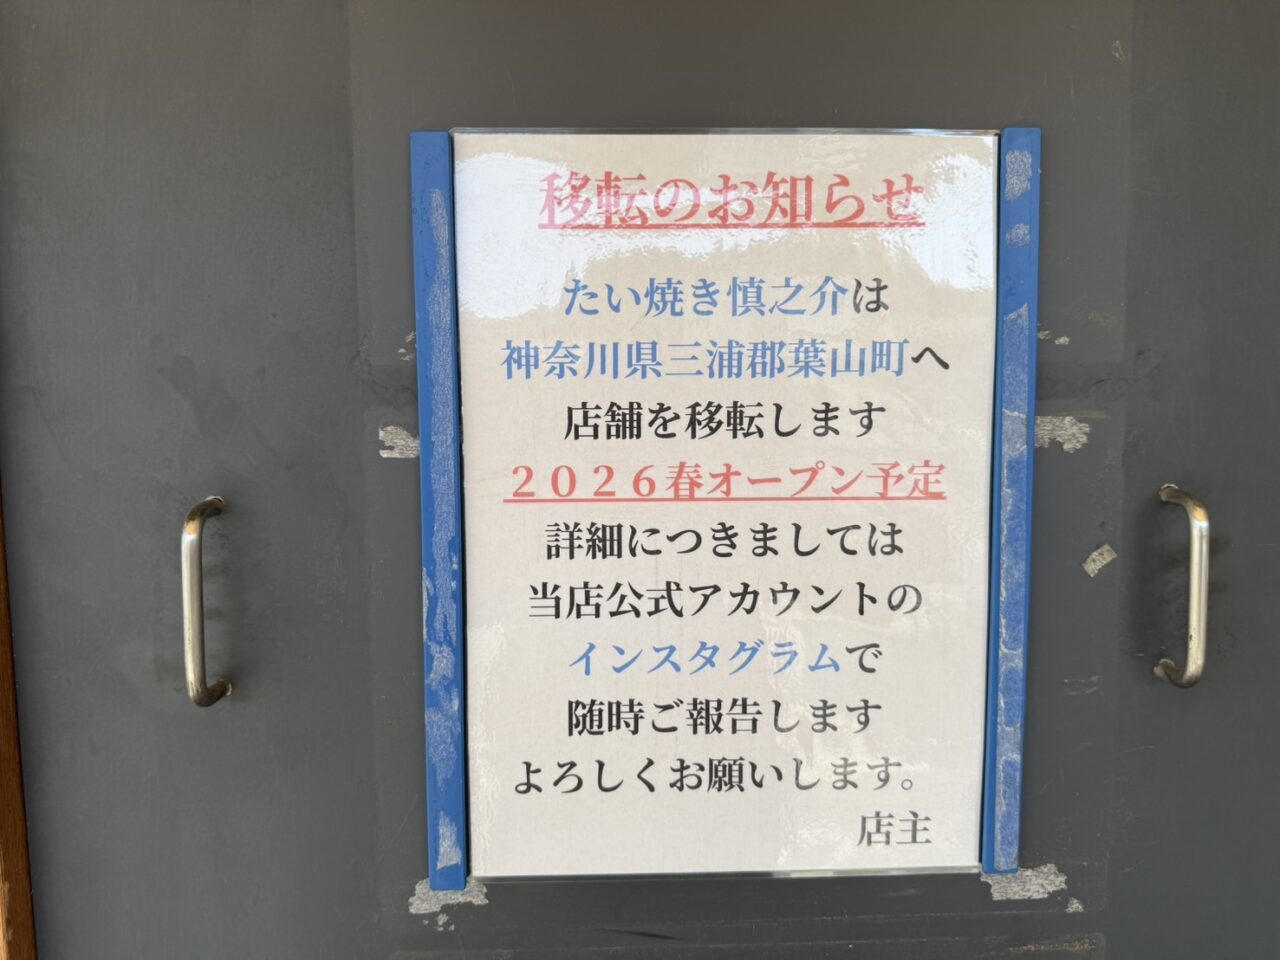 移転のお知らせ
たい焼き慎之介は
神奈川県三浦郡葉山町へ
店舗を移転します
２０２６春オープン予定
詳細につきましては
当店公式アカウントの
インスタグラムで
随時ご報告します
よろしくお願いします。
店主